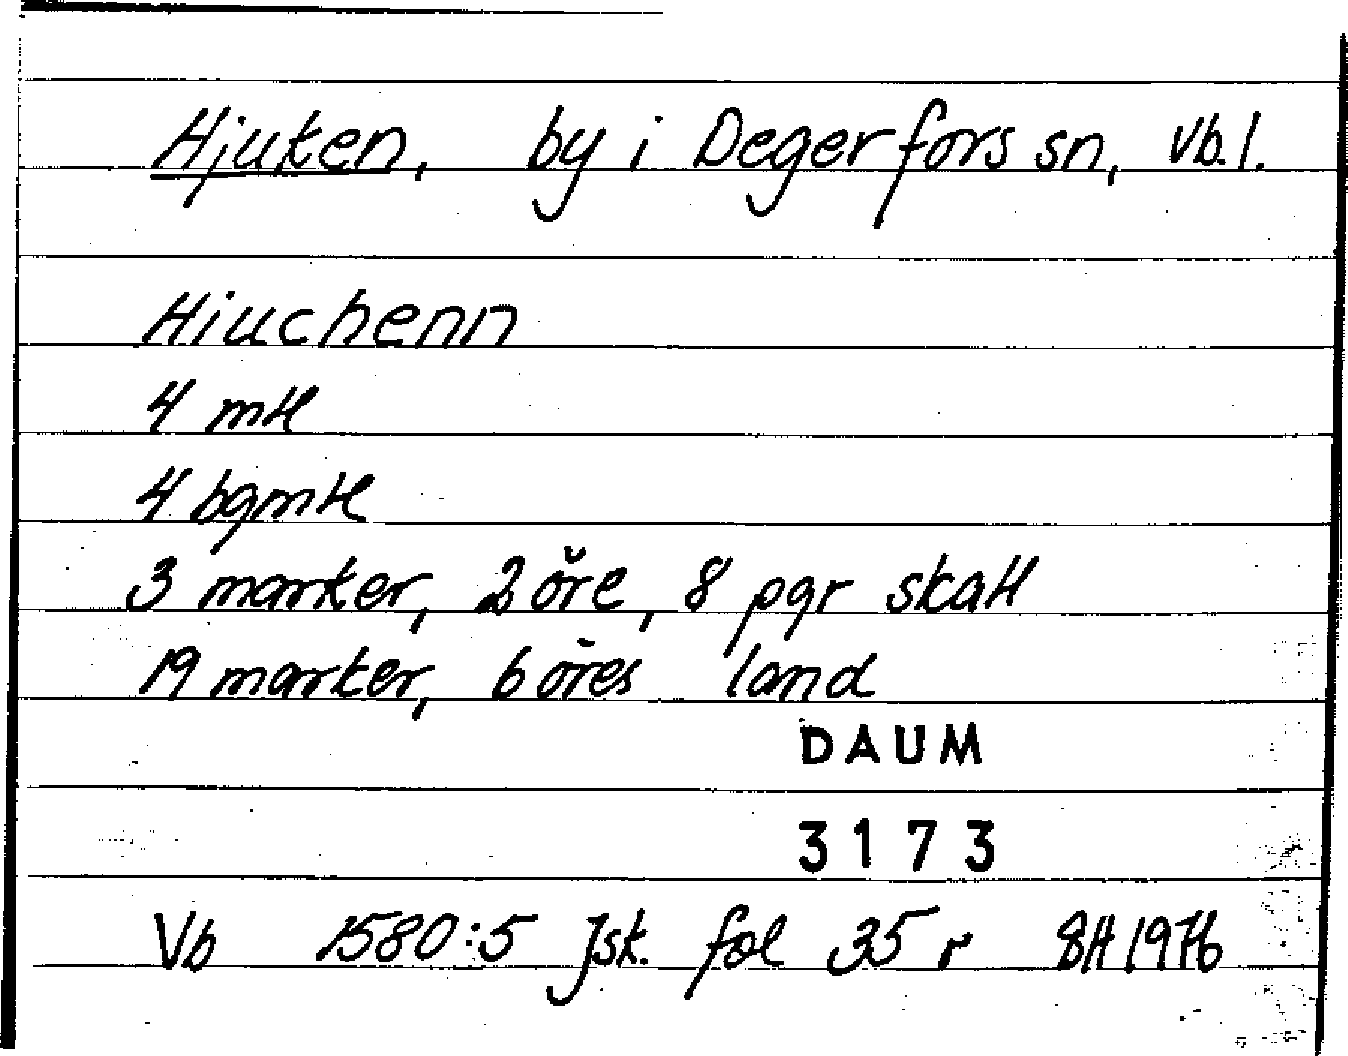 Hjuken, by i Degerfors sn, Vb. l.
Hiuchenn
4 mtl
4 bgmtl
3 marker, 2 öre, 8 pgr skatt
19 marker, 6 öres land
DAUM
3173
Vb 1580:5 Jsk. fol 35 r BH 1976